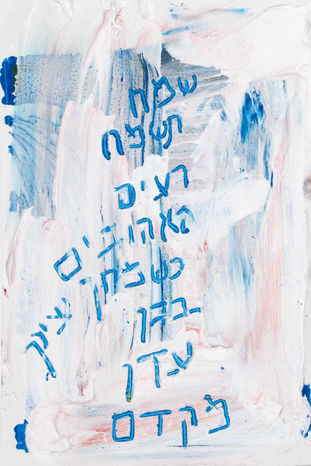 שמח
תשמח
רעים
האהובים
כשמחך יצירך
בגן
עדן
מקדם